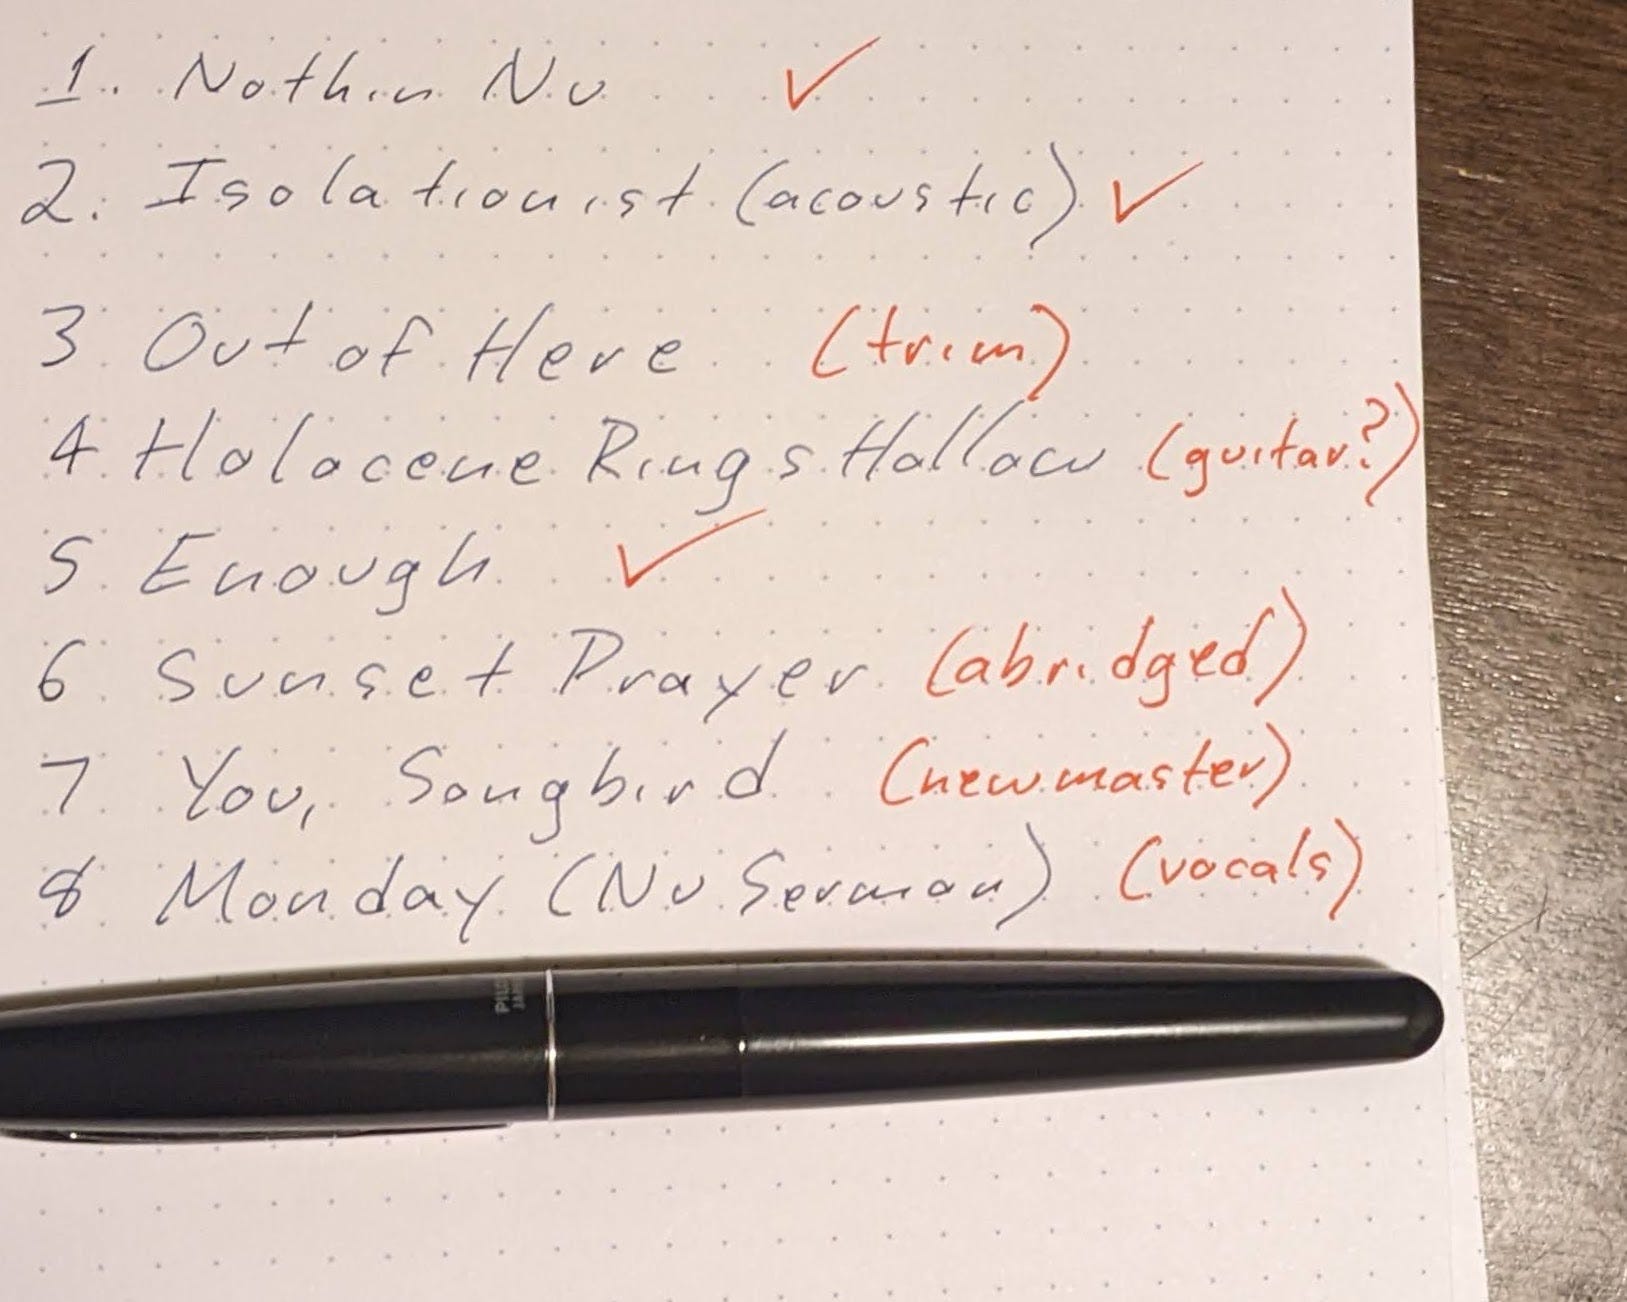 1. Nothin Nu ✓
2. Isolationist (acoustic) ✓
3 Out of Here (trim)
4. Holocene Rings Hollow (guitar?)
5 Enough ✓
6 Sunset Prayer (abridged)
7 You, Songbird (new master)
8 Monday (Nu Sermon) (vocals)